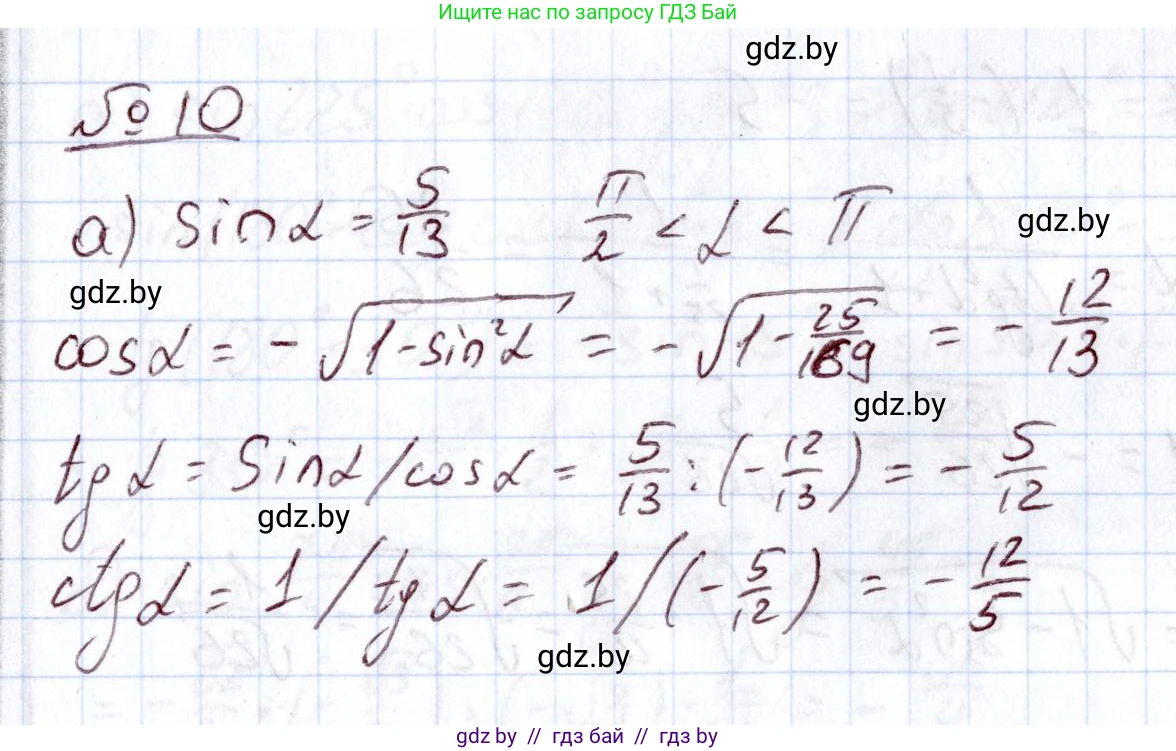 Ищите нас по запросу ГДЗ Бай
gdz.by
№ 10
а) sin α = 5/13    π/2 < α < π
gdz.by
gdz.by
cos α = - √(1 - sin² α) = - √(1 - 25/169) = - 12/13
gdz.by
tg α = sin α / cos α = 5/13 : (- 12/13) = - 5/12
gdz.by
ctg α = 1 / tg α = 1 / (- 5/12) = - 12/5
gdz.by
gdz.by // гдз бай // гдз by